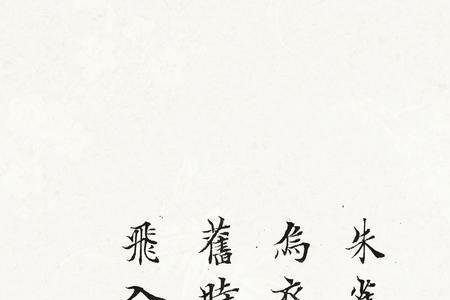 朱
烏衣
舊時
飛入